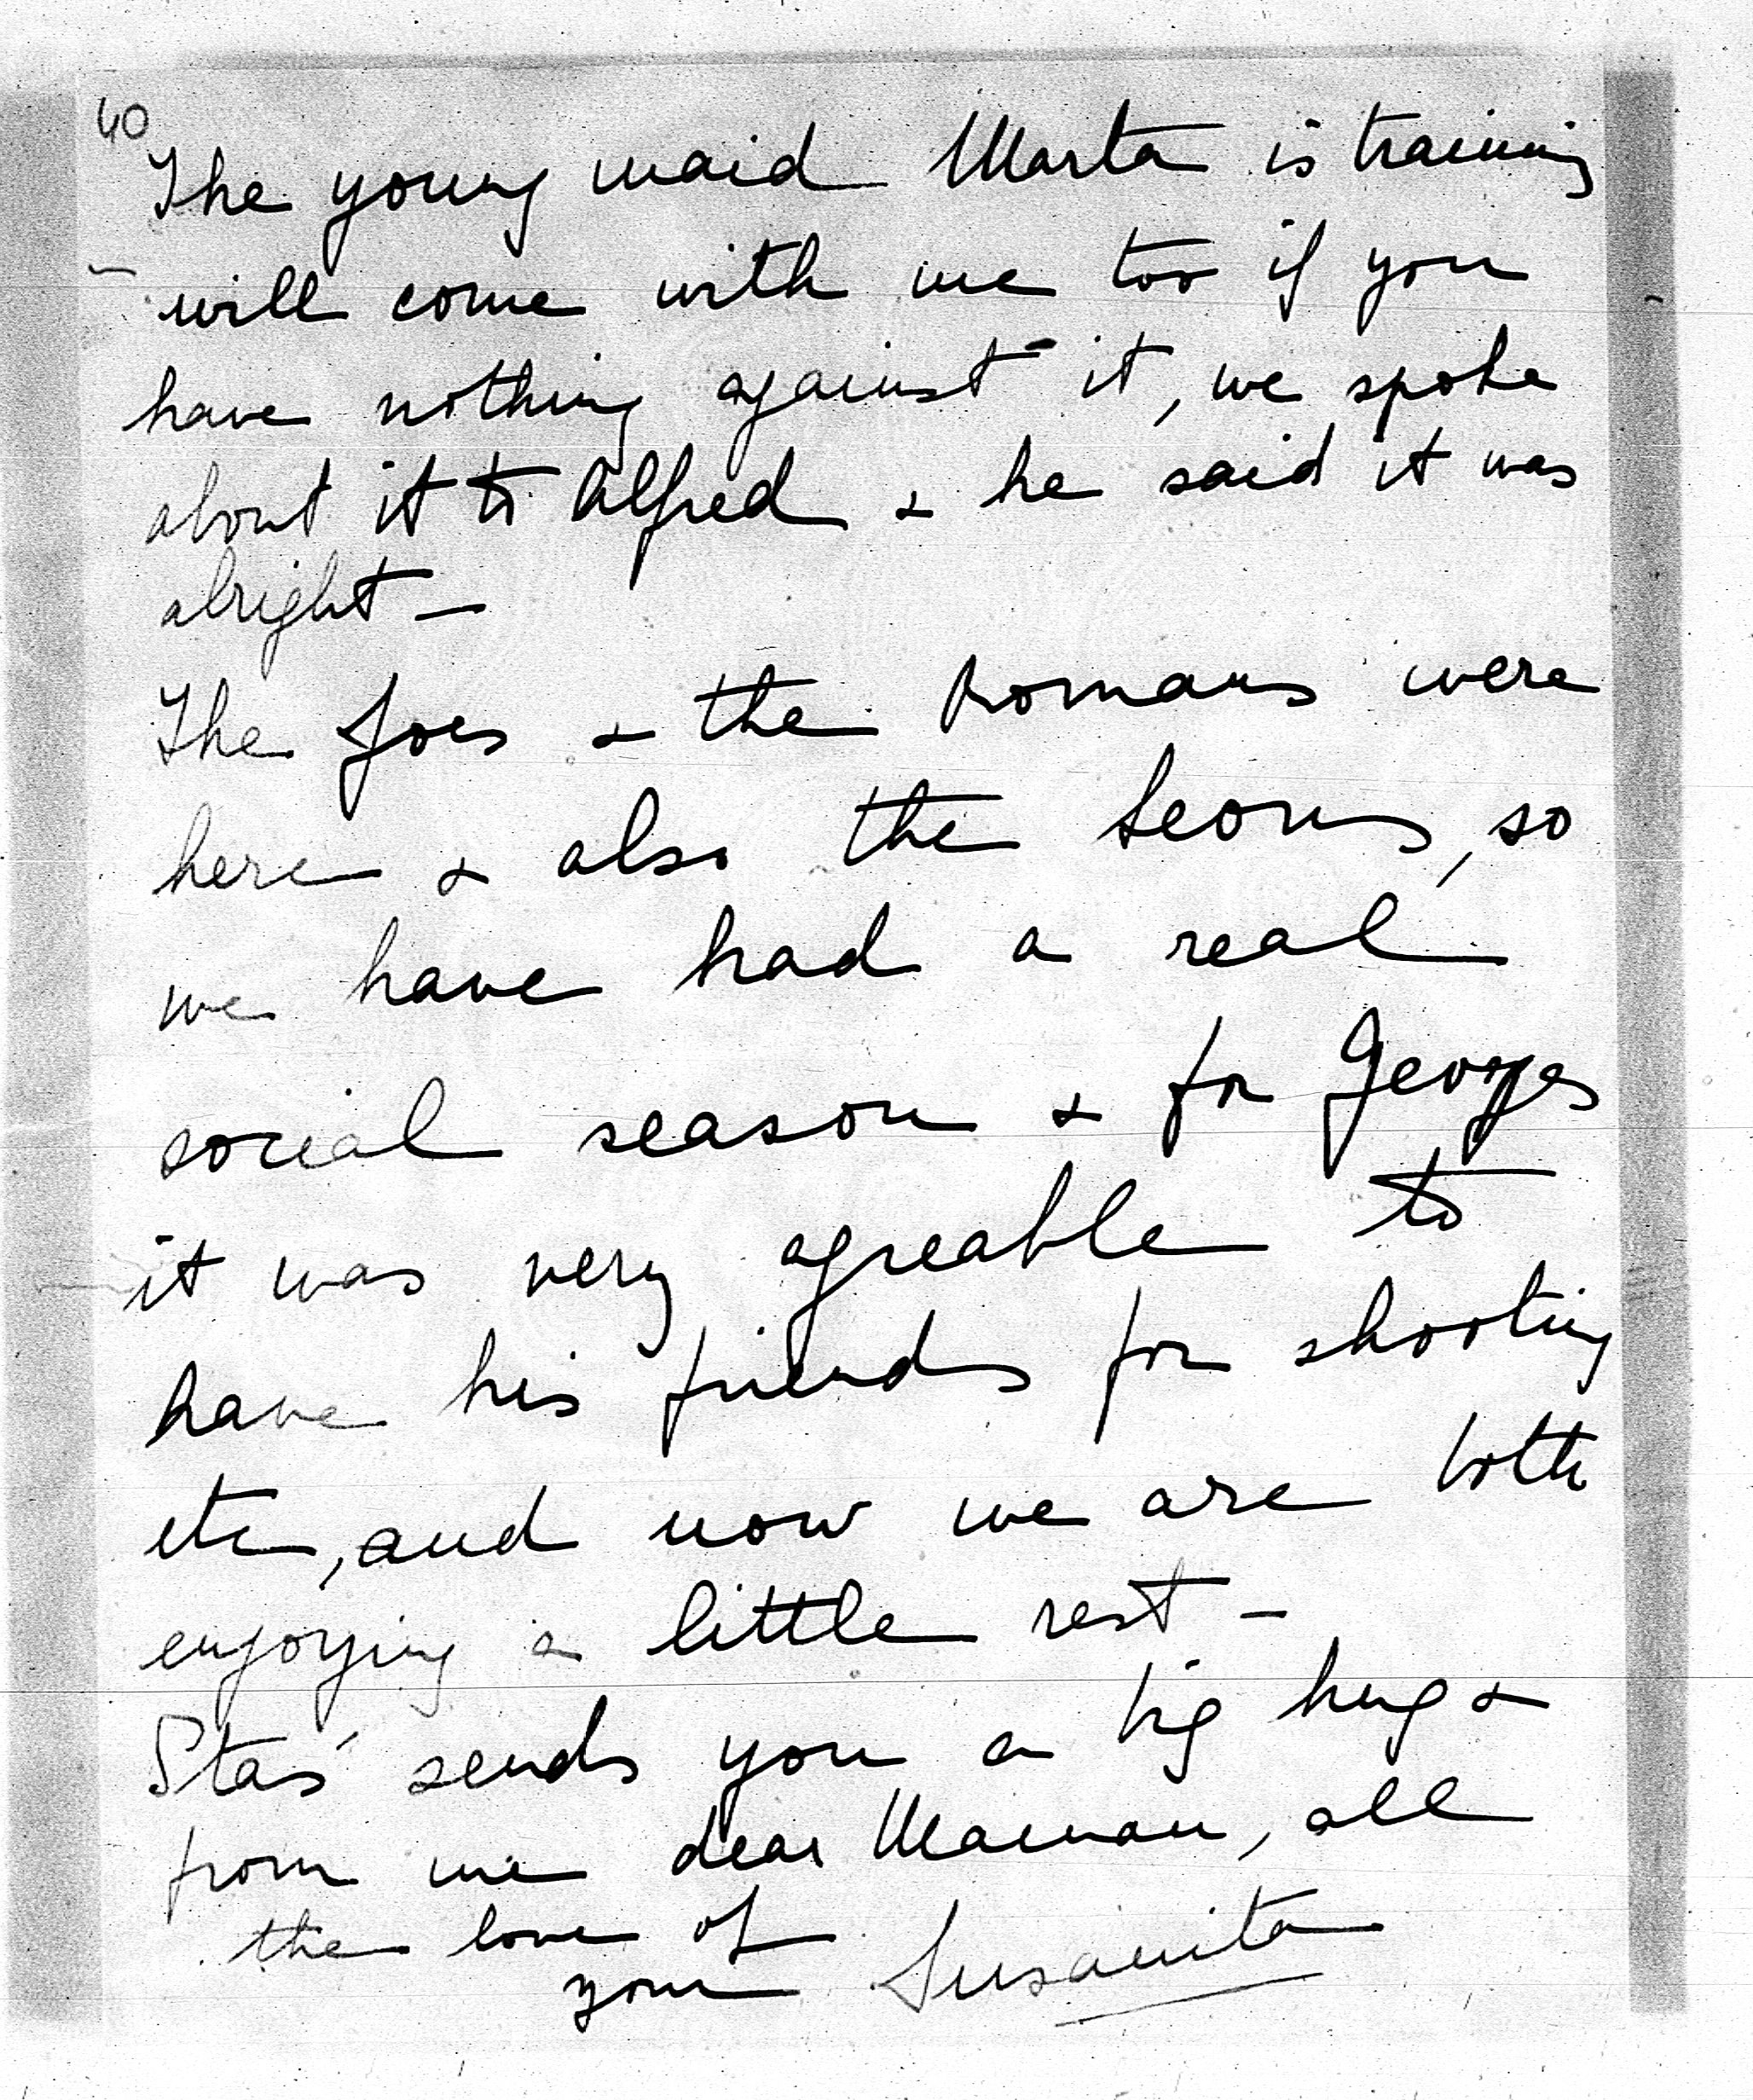 40
The young maid Marta is training
will come with me too if you
have nothing against it, we spoke
about it to Alfred & he said it was
alright —
The Joes & the Romans were
here & also the Leons, so
we have had a real
social season & for Georges
it was very agreable to
have his friends for shooting
etc, and now we are both
enjoying a little rest —
Stas' sends you a big hug &
from me dear Maman, all
the love of
your Susanita